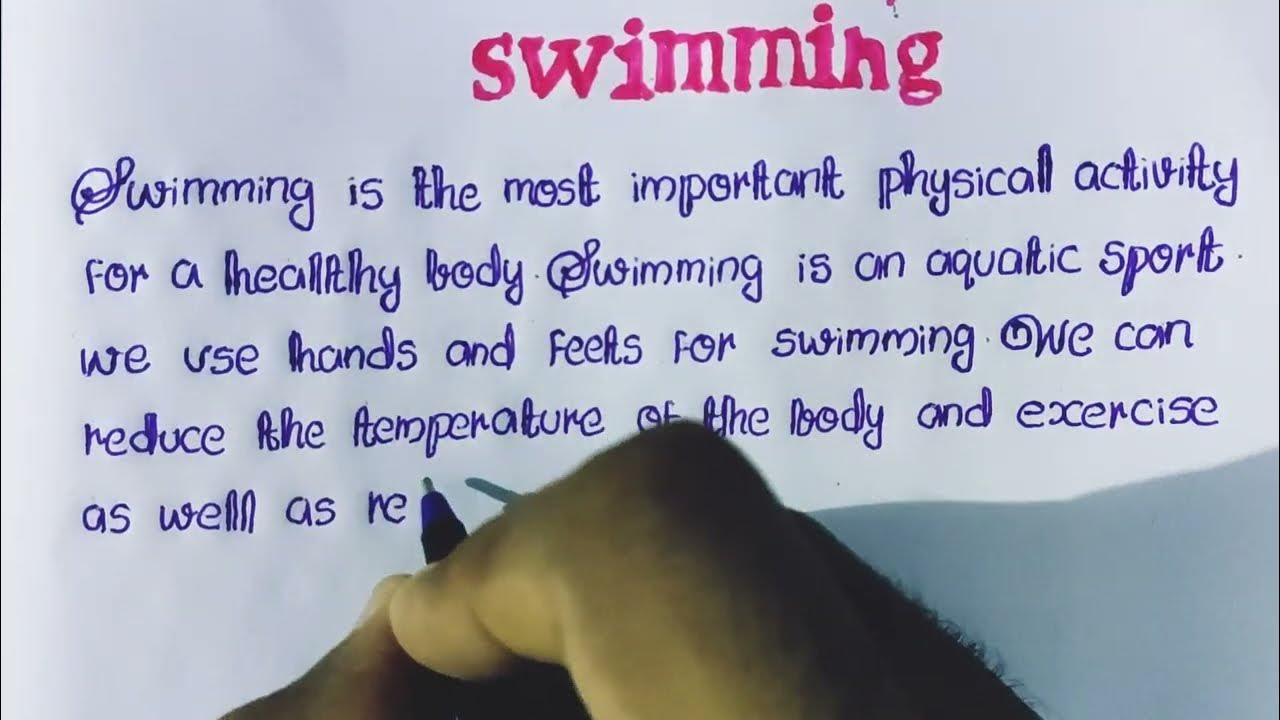 swimming
Swimming is the most important physical activity
for a healthy body. Swimming is an aquatic sport.
we use hands and feets for swimming. We can
reduce the temperature of the body and exercise
as well as re